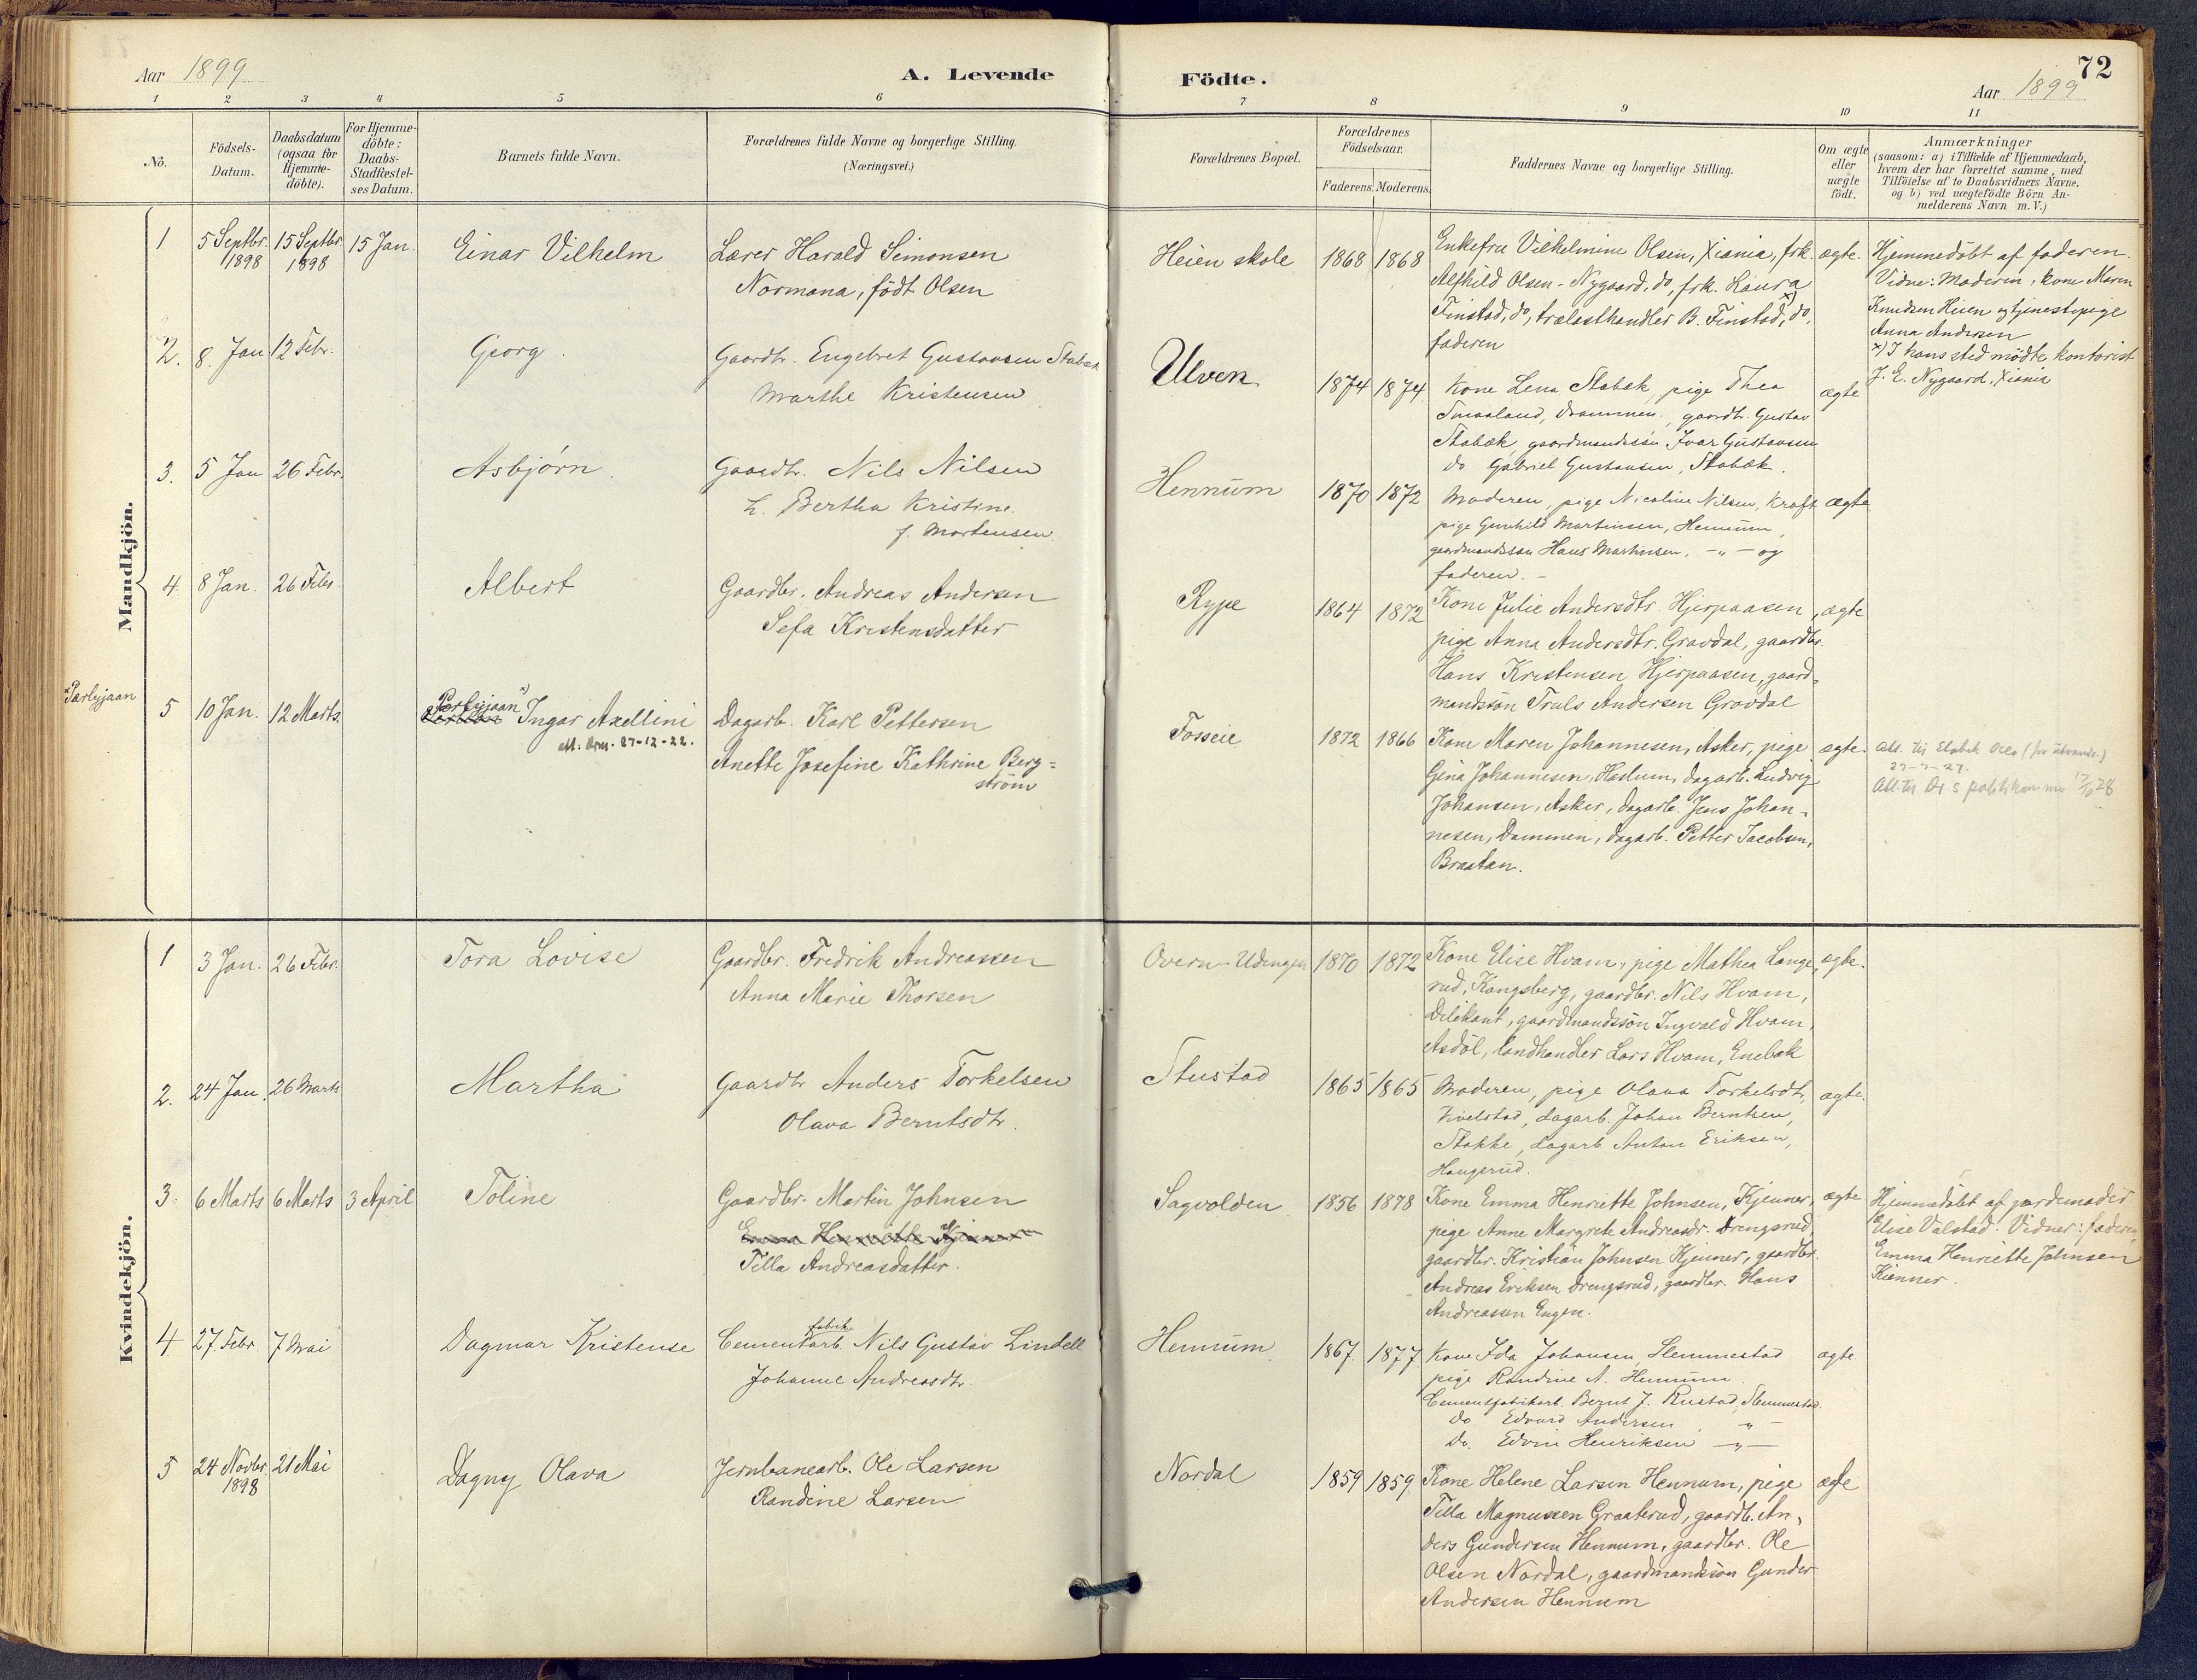 Aar 1899
A. Levende
Födte.
72
Aar 1899
1 2 3 4 5 6 7 8 9 10 11
No.
Födsels-
Datum.
Daabsdatum
(ogsaa for
Hjemme-
döbte).
For Hjemme-
döbte:
Daabs-
Stadfæstel-
ses Datum.
Barnets fulde Navn.
Forældrenes fulde Navne og borgerlige Stilling.
(Næringsvei.)
Forældrenes Bopæl.
Forældrenes
Födselsaar.
Faderens. Moderens.
Faddernes Navne og borgerlige Stilling.
Om ægte
eller
uægte
födt.
Anmærkninger
(saasom: a) i Tilfælde af Hjemmedaab,
hvem der har forrettet samme, med
Tilföielse af to Daabsvidners Navne.
og b) ved uægtefödte Börn An-
melderens Navn m. V.)
Mandkjön.
1
5 Septbr.
1898
15 Septbr
1898
15 Jan.
Einar Vilhelm
Lærer Harald Simonsen
Normana, födt Olsen
Heien skole
1868
1868
Enkefru Vilhelmine Olsen, Xiania, frk.
Alfhild Olsen-Nygaard, do, frk. Laura
Finstad, do, trælasthandler B. Finstad, x) do,
faderen
ægte.
Hjemmedöbt af faderen.
Vidne: Moderen, kone Maren
Knudsen Heien og tjenestepige
Anna Andersen
x) I hans sted mödte kontorist
J. E. Nygaard, Xiania
2.
8. Jan
12 Febr.
Georg.
Gaardbr. Engebret Gustavsen Stabæk
Marthe Kristensen
Ulven
1874
1874
Kone Lena Stabæk, pige Thea
Smaaland, Drammen, gaardbr. Gustav
Stabæk, gaardmandssön Ivar Gustavsen
do Gabriel Gustavsen, Stabæk.
ægte
3.
5 Jan
26 Febr.
Asbjørn.
Gaardbr. Nils Nilsen
h. Bertha Kristine.
f. Mortensen
Hennum
1870
1872
Moderen, pige Nicoline Nilsen, Kraft
pige Gunhild Martinsen, Hennum,
gaardmandssøn Hans Martinsen, -„- og
faderen. -
ægte
4.
8 Jan.
26 Febr.
Albert
Gaardbr. Andreas Andersen
Sefa Kristensdatter
Rype
1864
1872
Kone Julie Andersdtr. Hjerpaasen,
pige Anna Andersdtr. Gravdal, gaardbr.
Hans Kristensen Hjerpaasen, gaard-
mandssön Truls Andersen Gravdal
ægte
x Parbyjaan
5
10 Jan.
12 Marts.
Parbyjaan x) Ingar Axellini
att. 27-12-22.
Dagarb. Karl Pettersen
Anette Josefine Kathrine Berg=
ström
Fosseie
1872
1866
Kone Maren Johannesen, Asker, pige
Gina Johannesen, Haslum, dagarb. Ludvig
Johansen, Asker, dagarb. Jens Johan-
nesen, Dammen, dagarb. Petter Jacobsen,
Braatan.
ægte.
att. til Oslo (for utvandr.)
att. til politikammer
Kvindekjön.
1
3 Jan.
26 Febr.
Tora Lovise
Gaardbr. Fredrik Andreassen
Anna Marie Thorsen
Overn-Udengen
1870
1872
Kone Elise Hvam, pige Mathea Lange,
rud, Kongsberg, gaardbr. Nils Hvam,
Dilikant, gaardmandssön Ingvald Hvam,
Asdöl, landhandler Lars Hvam, Enebak
ægte.
2.
24 Jan.
26 Marts
Martha
Gaardbr Anders Torkelsen
Olava Berntsdtr.
Stustad
1865
1865
Moderen, pige Olava Torkelsdtr,
Kvelstad, dagarb. Johan Berntsen,
Stokke, dagarb Anton Eriksen,
Haugerud.
ægte.
3.
6 Marts
6 Marts
3 April
Toline
Gaardbr. Martin Johnsen
Emma Henriette Kjenner
Tilla Andreasdatter.
Sagvolden
1856
1878
Kone Emma Henriette Johnsen, Kjenner,
pige Anne Margrete Andreasdr. Drengsrud
gaardbr. Kristian Johnsen Kjenner, gaardbr.
Andreas Eriksen Drengsrud, gaardbr. Hans
Andreassen Engen.
ægte
Hjemmedöbt af jordemoder
Elise Valstad. Vidner: faderen,
Emma Henriette Johnsen
Kjenner.
4
27. Febr.
7 Mai
Dagmar Kristense
Cementfabrik arb. Nils Gustav Lindell
Johanne Andreasdtr.
Hennum
1867.
1877.
Kone Ida Johansen, Slemmestad
pige Randine A. Hennum.
Cementfabrikarb. Bernt J. Rustad, Slemmestad.
Do. Edvard Andersen -„-
Do. Edvin Henriksen -„-
ægte
5
24 Novbr.
1898
21 Mai
Dagny Olava
Jernbanearb. Ole Larsen
Randine Larsen
Nordal
1859
1859
Kone Helene Larsen Hennum, pige
Tilla Magnussen Graaterud, gaardb. An-
ders Gundersen Hennum, gaardbr. Ole
Olsen Nordal, gaardmandssön Gunder
Andersen Hennum
ægte